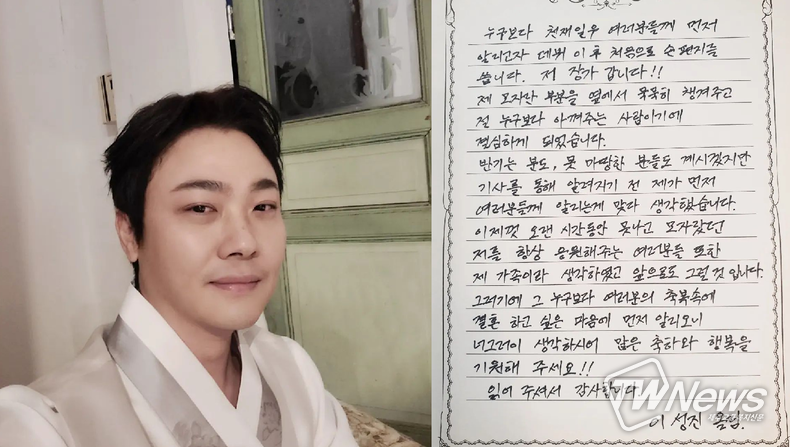 누구보다 천재일우 여러분들께 먼저
알리고자 데뷔 이후 처음으로 손편지를
씁니다. 저 장가 갑니다!!
제 모자란 부분을 옆에서 묵묵히 챙겨주고
절 누구보다 아껴주는 사람이기에
결심하게 되었습니다.
반기는 분도, 못 마땅한 분들도 계시겠지만
기사를 통해 알려지기 전 제가 먼저
여러분들께 알리는게 맞다 생각했습니다.
이제껏 오랜 시간동안 못나고 모자랐던
저를 항상 응원해주는 여러분들 또한
제 가족이라 생각하였고 앞으로도 그럴 것 입니다.
그러기에 그 누구보다 여러분의 축복속에
결혼 하고 싶은 마음에 먼저 알리오니
너그러이 생각하시어 많은 축하와 행복을
기원해 주세요!!
읽어 주셔서 감사합니다.
이 성진 올림.
TWNews